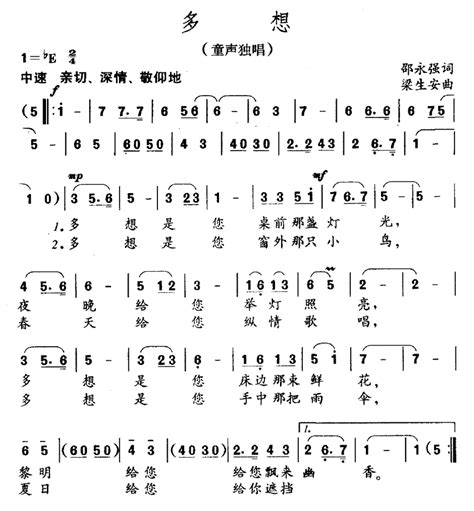 多 想
(童声独唱)
1=♭E 2/4
中速 亲切、深情、敬仰地
邵永强词
梁生安曲
f
(5 ‖: 1 - | 7 7. 7 | 6 5 6 | 6 - | 7 - | 6 6. 6 | 6 7 5 |
5 - | 6 - | 6 0 5 0 | 4 0 3 0 | 4 0 3 0 | 2. 2 4 3 | 2 6. 7 |
mp mf
1 0) | 3 5. 6 | 5 - | 3 2 3 | 1 - | 3 3 5 1 | 7 6. 7 | 5 - | 5 - |
1.多 想 是 您 桌前那盏 灯 光,
2.多 想 是 您 窗外那只 小 鸟,
4 5. 6 | 6 - | 5 1 1 2 | 3 - | 1 6 1 3 | 6 5 | 2 - | 2 - |
夜 晚 给 您 举 灯 照 亮,
春 天 给 您 纵 情 歌 唱,
3 5. 6 | 5 - | 3 2 3 | 6 - | 1 6 1 3 | 5 1 | 7 - | 7 - |
多 想 是 您 床边那束 鲜 花,
多 想 是 您 手中那把 雨 伞,
1.
6 5 | (6 0 5 0) | 4 3 | (4 0 3 0) | 2. 2 4 3 | 2 6. 7 | 1 - | 1 (5 :‖
黎 明 给 您 给您飘来 幽 香。
夏 日 给 您 给你遮挡